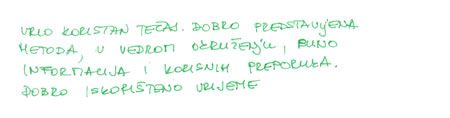 VRLO KORISTAN TEČAJ. DOBRO PREDSTAVLJENA
METODA, U VEDROM OKRUŽENJU, PUNO
INFORMACIJA I KORISNIH PREPORUKA.
DOBRO ISKORIŠTENO VRIJEME